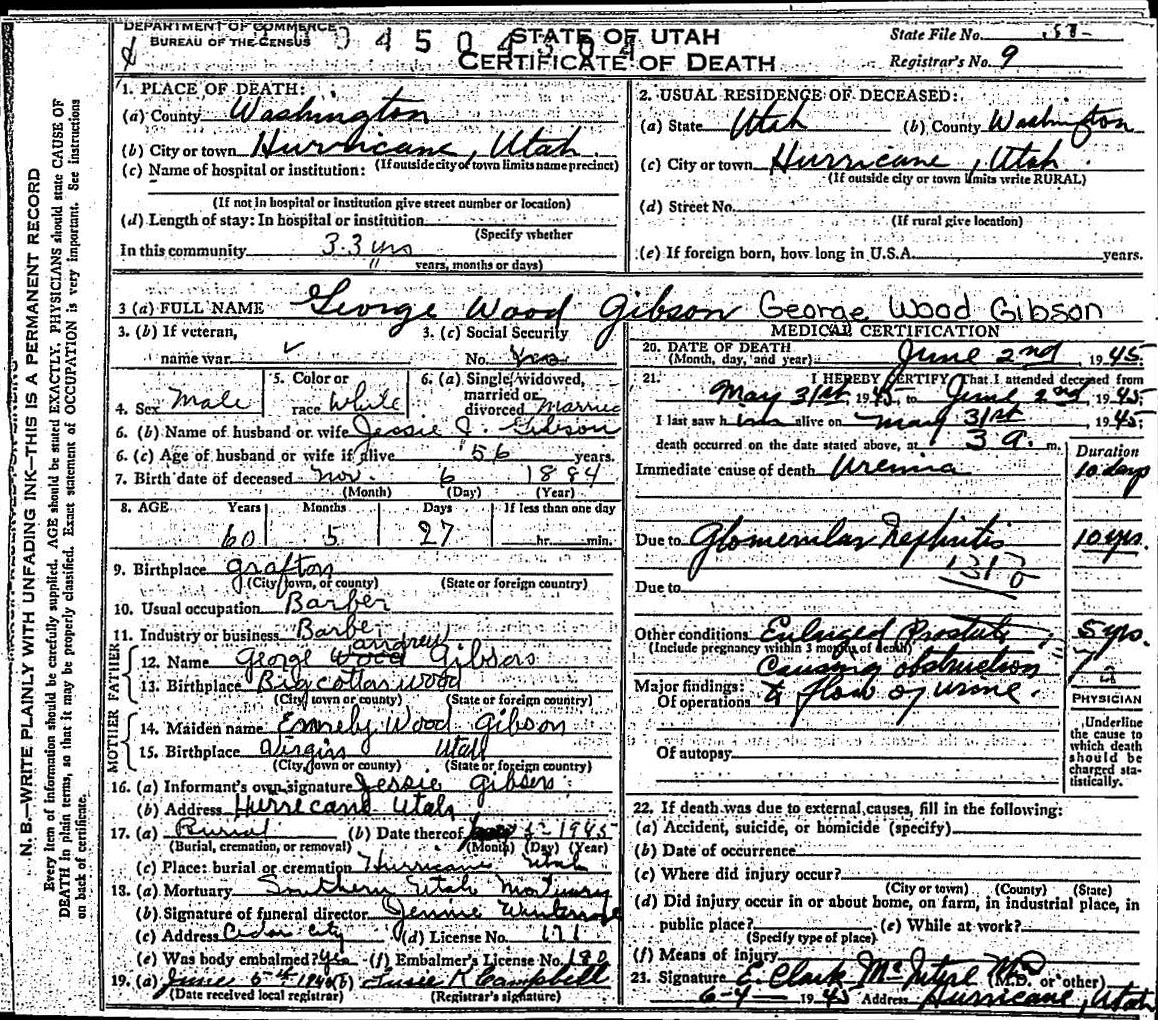 DEPARTMENT OF COMMERCE
BUREAU OF THE CENSUS
STATE OF UTAH
CERTIFICATE OF DEATH
State File No.
Registrar's No. 9
1. PLACE OF DEATH:
(a) County Washington
(b) City or town Hurricane, Utah
(If outside city or town limits name precinct)
(c) Name of hospital or institution:
(If not in hospital or institution give street number or location)
(d) Length of stay: In hospital or institution
(Specify whether
In this community 33 yrs
years, months or days)
2. USUAL RESIDENCE OF DECEASED:
(a) State Utah (b) County Washington
(c) City or town Hurricane, Utah.
(If outside city or town limits write RURAL)
(d) Street No.
(If rural give location)
(e) If foreign born, how long in U.S.A. years.
3 (a) FULL NAME George Wood Gibson George Wood Gibson
3. (b) If veteran,
name war.
3. (c) Social Security
No.
4. Sex Male
5. Color or
race White
6. (a) Single, widowed,
married or
divorced Married
6. (b) Name of husband or wife Jessie J. Gibson
6. (c) Age of husband or wife if alive 56 years.
7. Birth date of deceased Nov. 6 1884
(Month) (Day) (Year)
8. AGE Years Months Days If less than one day
60 5 27 hr. min.
9. Birthplace Grafton
(City, town, or county) (State or foreign country)
10. Usual occupation Barber
11. Industry or business Barber
FATHER
andrew
12. Name George Wood Gibson
13. Birthplace Big cotton wood
(City, town or county) (State or foreign country)
MOTHER
14. Maiden name Emreby Wood Gibson
15. Birthplace Virgin Utah
(City, town or county) (State or foreign country)
16. (a) Informant's own signature Jessie Gibson
(b) Address Hurricane Utah
17. (a) Burial (b) Date thereof 5- 1945
(Burial, cremation, or removal) (Month) (Day) (Year)
(c) Place: burial or cremation Hurricane Utah
18. (a) Mortuary Southern Utah Mortuary
(b) Signature of funeral director Jennie Winterrose
(c) Address Cedar City (d) License No. 171
(e) Was body embalmed? Yes (f) Embalmer's License No. 180
19. (a) June 5th 1945 (b) Susie K Campbell
(Date received local registrar) (Registrar's signature)
MEDICAL CERTIFICATION
20. DATE OF DEATH
(Month, day, and year) June 2nd, 1945.
21. I HEREBY CERTIFY, That I attended deceased from
May 31st, 1945, to June 2nd, 1945;
I last saw him alive on May 31st 1945;
death occurred on the date stated above, at 3 a. m.
Duration
Immediate cause of death Uremia 10 days
Due to Glomerular Nephritis 10 yrs.
Due to
Other conditions Enlarged Prostate 5 yrs.
(Include pregnancy within 3 months of death)
Causing obstruction
Major findings: to flow of urine.
Of operations
Of autopsy
PHYSICIAN
Underline
the cause to
which death
should be
charged sta-
tistically.
22. If death was due to external causes, fill in the following:
(a) Accident, suicide, or homicide (specify)
(b) Date of occurrence
(c) Where did injury occur?
(City or town) (County) (State)
(d) Did injury occur in or about home, on farm, in industrial place, in
public place? (e) While at work?
(Specify type of place)
(f) Means of injury
21. Signature E. Clark McIntire MD (M.D. or other)
6-4- 1945 Address Hurricane, Utah
N. B.—WRITE PLAINLY WITH UNFADING INK—THIS IS A PERMANENT RECORD
Every item of information should be carefully supplied. AGE should be stated EXACTLY. PHYSICIANS should state CAUSE OF
DEATH in plain terms, so that it may be properly classified. Exact statement of OCCUPATION is very important. See instructions
on back of certificate.